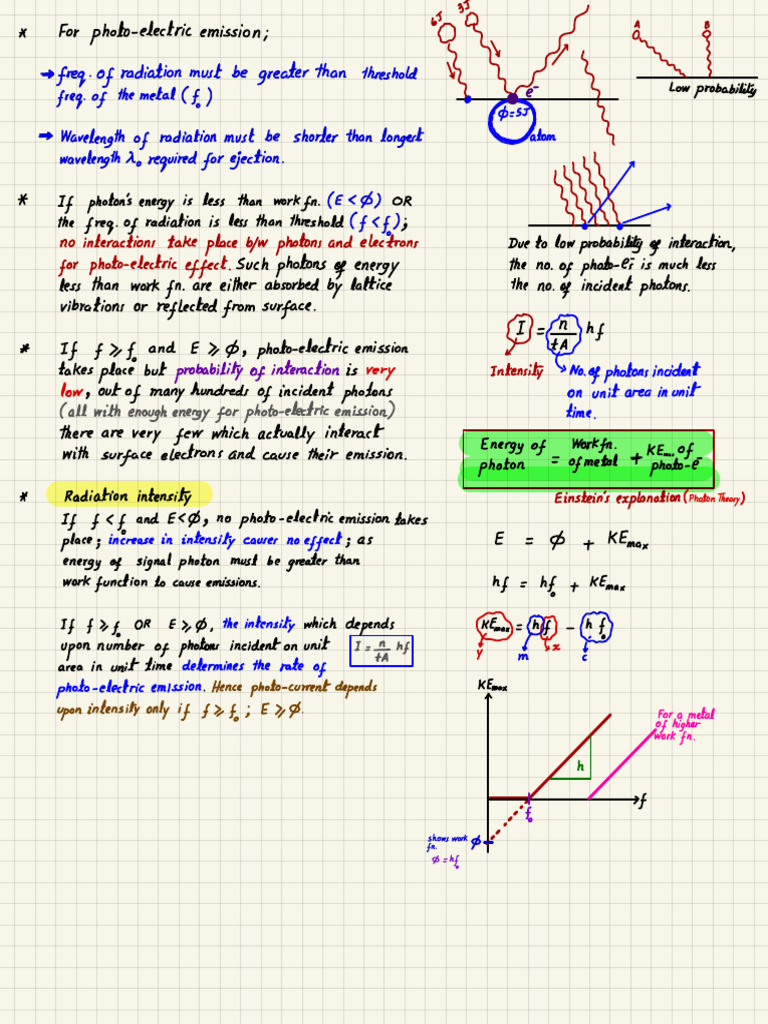 * For photo-electric emission;
→ freq. of radiation must be greater than threshold
freq. of the metal (f₀)
→ Wavelength of radiation must be shorter than longest
wavelength λ₀ required for ejection.
* If photon's energy is less than work fn. (E < Φ) OR
the freq. of radiation is less than threshold (f < f₀);
no interactions take place b/w photons and electrons
for photo-electric effect. Such photons of energy
less than work fn. are either absorbed by lattice
vibrations or reflected from surface.
* If f ⩾ f₀ and E ⩾ Φ, photo-electric emission
takes place but probability of interaction is very
low, out of many hundreds of incident photons
(all with enough energy for photo-electric emission)
there are very few which actually interact
with surface electrons and cause their emission.
* Radiation intensity
If f < f₀ and E < Φ, no photo-electric emission takes
place; increase in intensity causes no effect; as
energy of signal photon must be greater than
work function to cause emissions.
If f ⩾ f₀ OR E ⩾ Φ, the intensity which depends
upon number of photons incident on unit
area in unit time determines the rate of
photo-electric emission. Hence photo-current depends
upon intensity only if f ⩾ f₀ ; E ⩾ Φ.
I = n/tA hf
6J 3J
e⁻
Φ=5J
atom
A B
Low probability
Due to low probability of interaction,
the no. of photo-e⁻s is much less
the no. of incident photons.
I = n/tA hf
Intensity
No. of photons incident
on unit area in unit
time.
Energy of photon = Work fn. of metal + KEmax of photo-e⁻
Einstein's explanation (Photon Theory)
E = Φ + KEmax
hf = hf₀ + KEmax
KEmax = hf − hf₀
y m x c
KEmax
For a metal
of higher
work fn.
h
f
f₀
shows work
fn.
Φ
Φ = hf₀